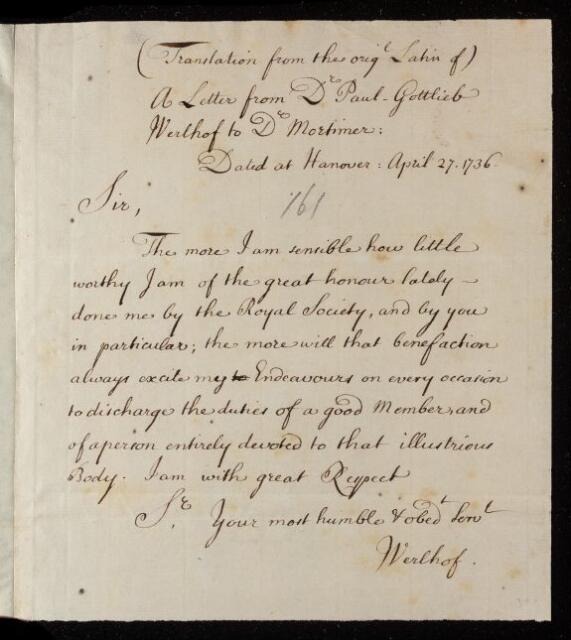 (Translation from the orig.l Latin of)
A Letter from Dr Paul-Gottlieb
Werlhof to Dr Mortimer:
Dated at Hanover: April 27. 1736.
Sir,
161
The more I am sensible how little
worthy I am of the great honour lately -
done me by the Royal Society, and by you
in particular; the more will that benefaction
always excite my to Endeavours on every occasion
to discharge the duties of a good Member, and
of a person entirely devoted to that illustrious
Body. I am with great Respect
Sr. Your most humble & obed.t Serv.t
Werlhof.